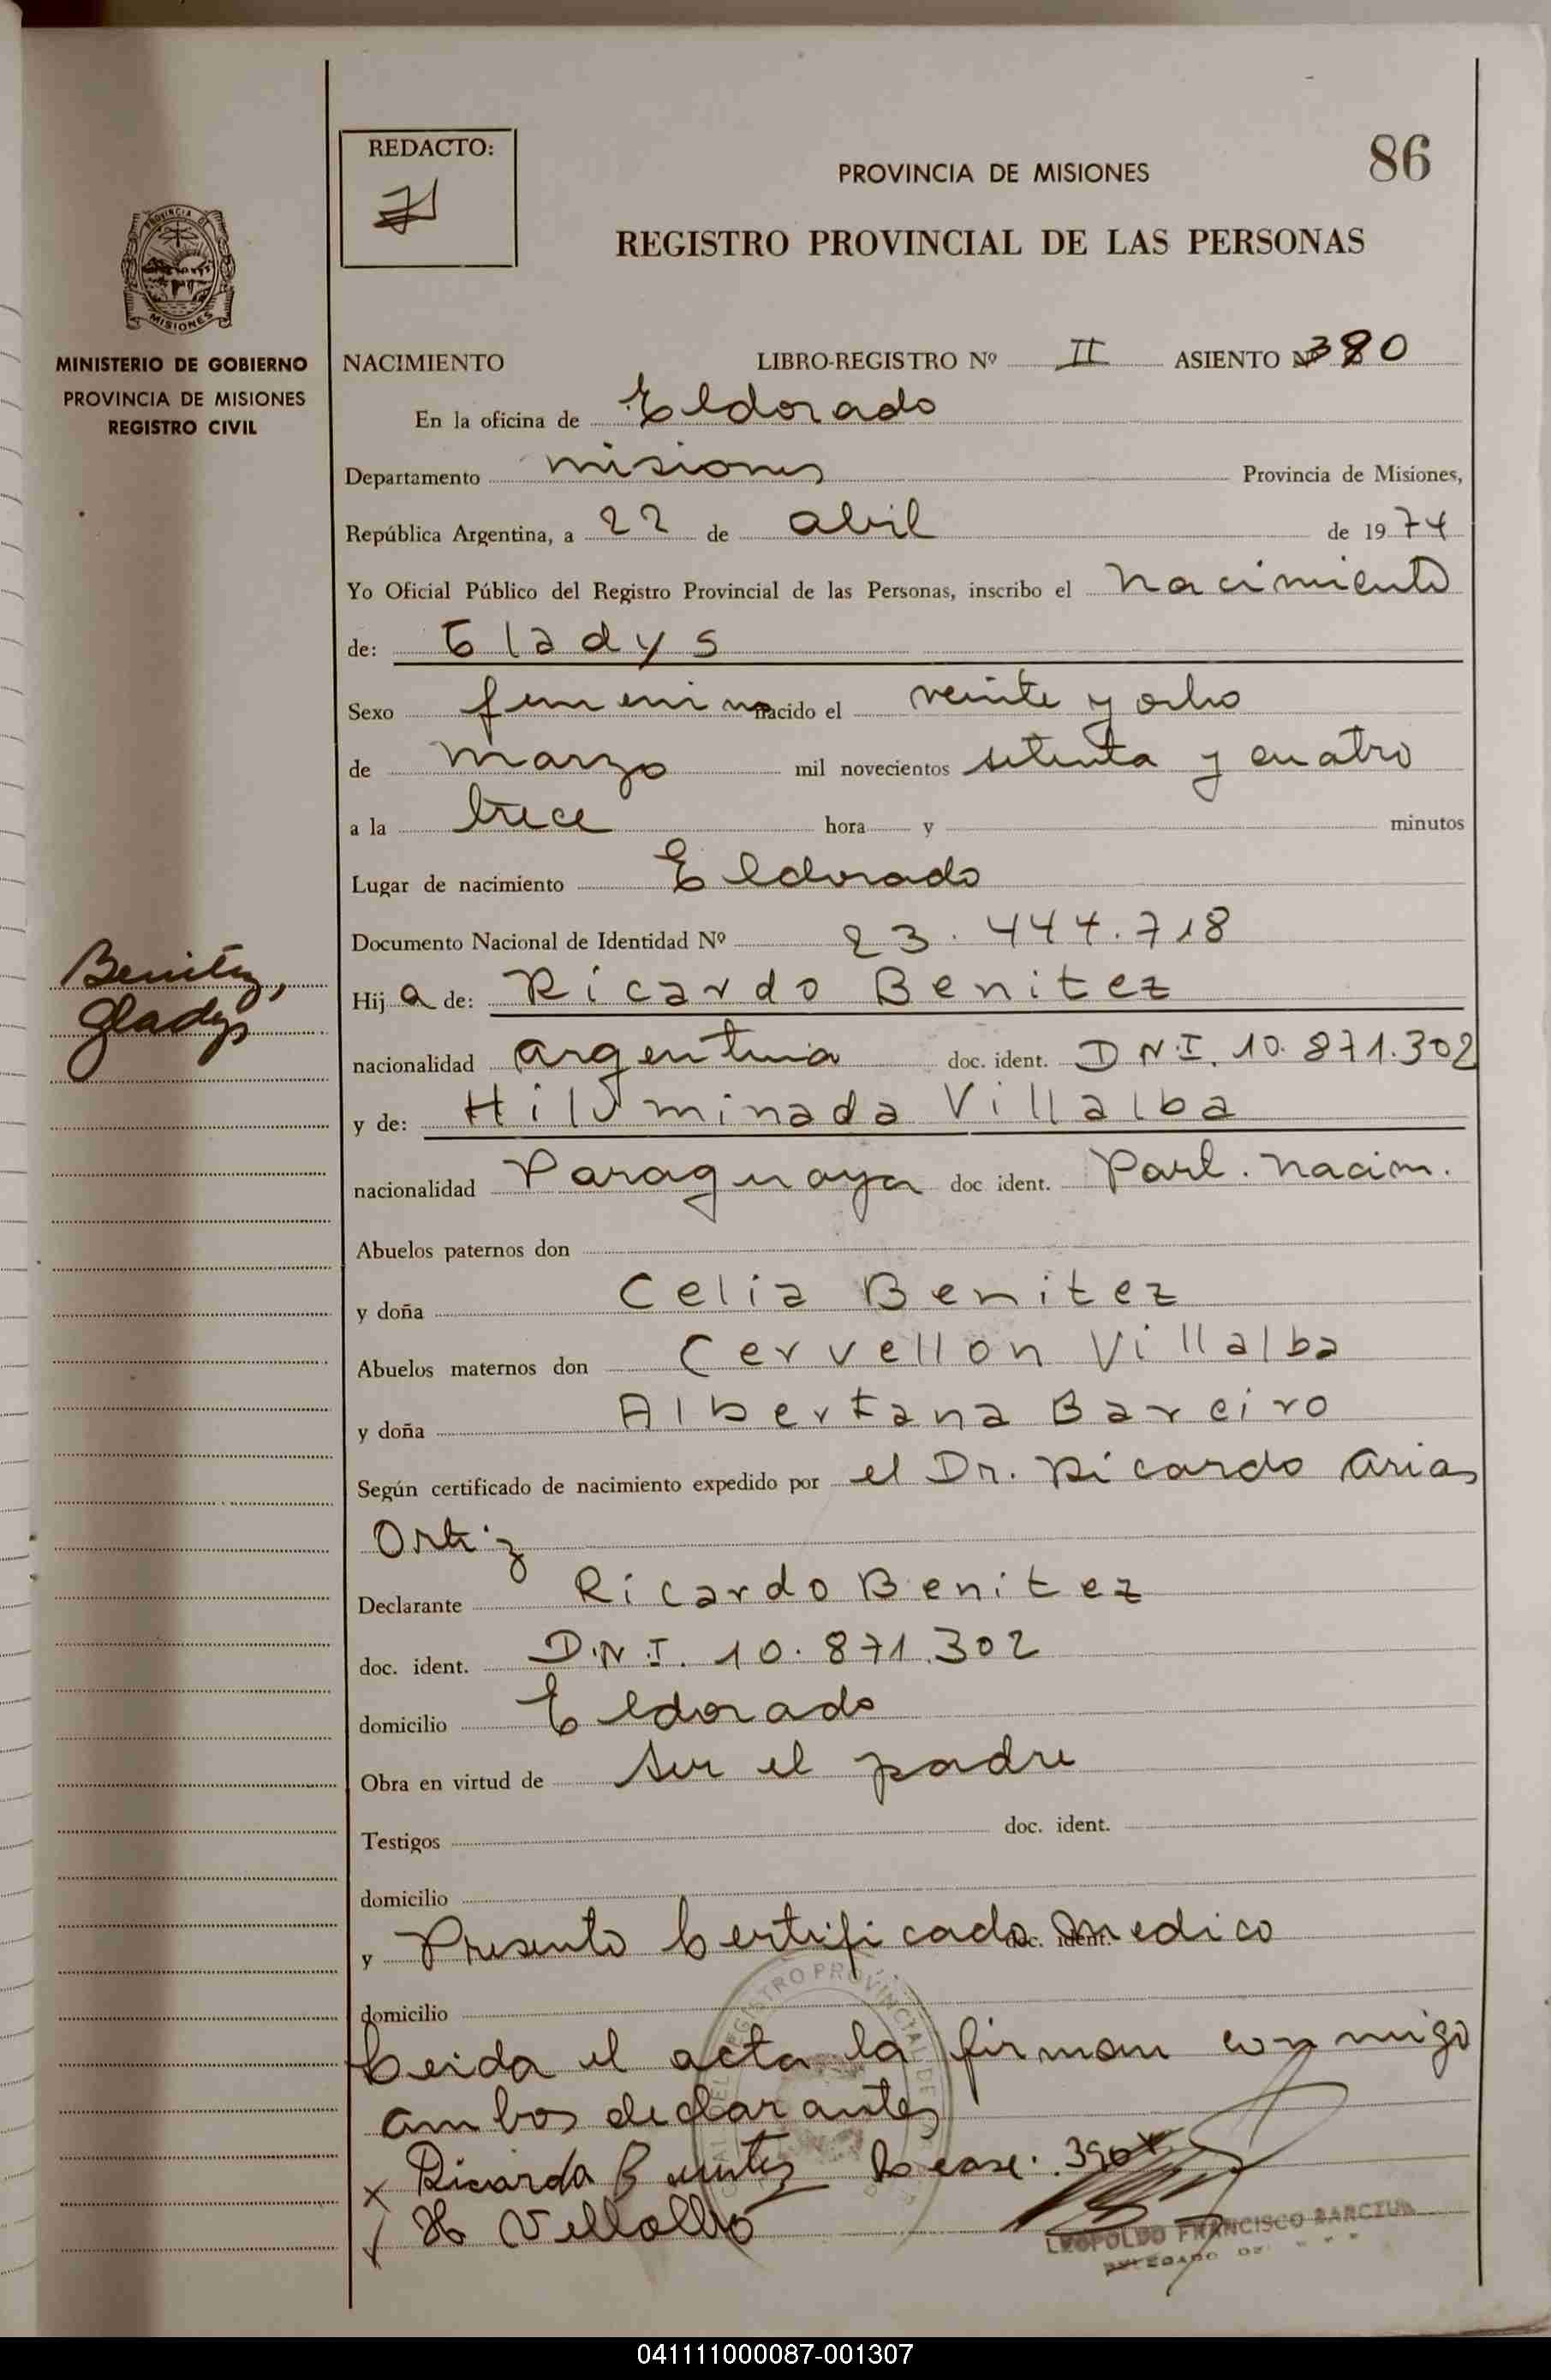 REDACTO:
86
PROVINCIA DE MISIONES
REGISTRO PROVINCIAL DE LAS PERSONAS
PROVINCIA DE
MISIONES
MINISTERIO DE GOBIERNO
PROVINCIA DE MISIONES
REGISTRO CIVIL
NACIMIENTO LIBRO-REGISTRO Nº II ASIENTO Nº 380
En la oficina de Eldorado
Departamento misiones Provincia de Misiones,
República Argentina, a 22 de abril de 1974
Yo Oficial Público del Registro Provincial de las Personas, inscribo el nacimiento
de: Gladys
Sexo femenino nacido el veinte y ocho
de marzo mil novecientos setenta y cuatro
a la trece hora y minutos
Lugar de nacimiento Eldorado
Documento Nacional de Identidad Nº 23.444.718
Benitez,
Gladys
Hija de: Ricardo Benitez
nacionalidad argentina doc. ident. DNI. 10.871.302
y de: Hiluminada Villalba
nacionalidad Paraguaya doc ident. Part. nacim.
Abuelos paternos don
y doña Celia Benitez
Abuelos maternos don Cervellon Villalba
y doña Albertana Bareiro
Según certificado de nacimiento expedido por el Dr. Ricardo Arias
Ortiz
Declarante Ricardo Benitez
doc. ident. D.N.I. 10.871.302
domicilio Eldorado
Obra en virtud de ser el padre
Testigos doc. ident.
domicilio
y Presento Certificado medico doc. ident.
domicilio
Leida el acta la firman conmigo
ambos declarantes
x Ricardo Benitez
H Villalba
LEOPOLDO FRANCISCO BARCZUK
041111000087-001307